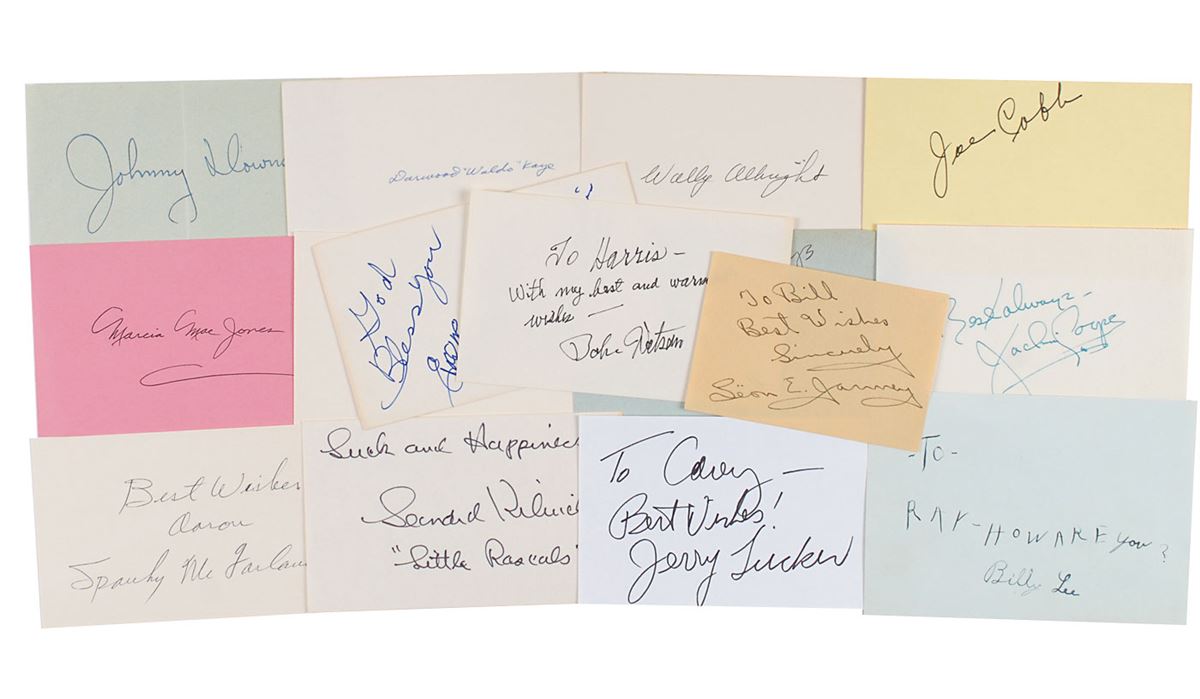 Johnny Down
Darwood "Waldo" Kaye
Wally Albright
Joe Cobb
Marcia Mae Jones
God
Bless you
To Harris -
With my best and warm
wishes -
To Bill
Best Wishes
Sincerely
Leon E. Janney
Best always -
Best Wishes
Aaron
Spanky Mc Farlan
Luck and Happines
Leonard
"Little Rascals"
To Corey -
Best Wishes!
Jerry Tucker
-To-
RAY - HOW ARE you?
Billy Lee